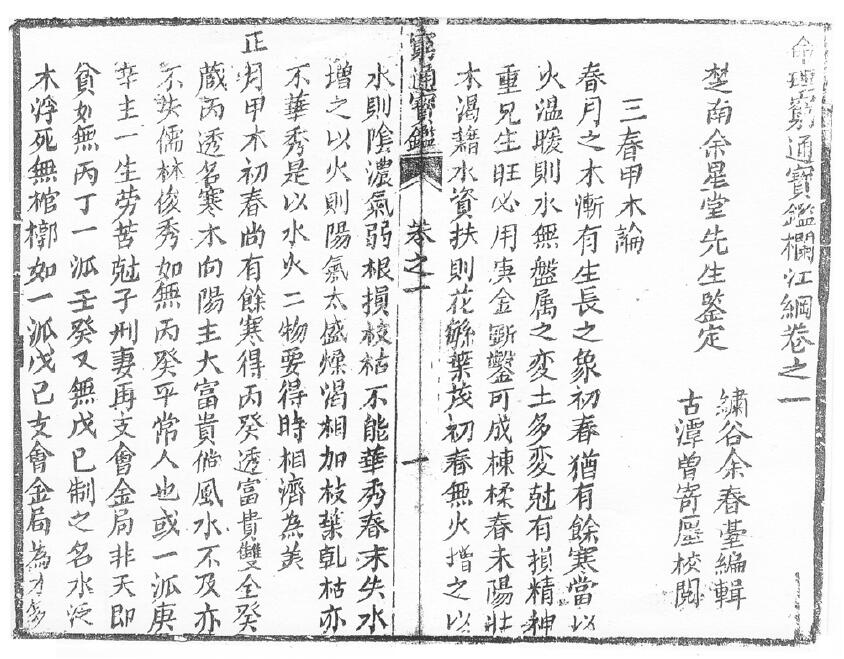 命理窮通寶鑑欄江綱卷之一
楚南余星堂先生鑒定
繡谷余春臺編輯
古潭曾寄壓校閱
三春甲木論
春月之木慚有生長之象初春猶有餘寒當以
火温暖則水無盤属之変土多変尅有損精神
重見生旺必用庚金斲鑿可成棟樑春末陽壯
木渴藉水資扶則花繇葉茂初春無火增之以
窮通寶鑑 卷之一 一
水則陰濃氣弱根損枝枯不能華秀春末失水
增之以火則陽氣太盛燥渴相加枝葉乾枯亦
不華秀是以水火二物要得時相濟為美
正月甲木初春尚有餘寒得丙癸透富貴雙全癸
蔵丙透名寒木向陽主大富貴倘風水不及亦
不失儒林俊秀如無丙癸平常人也或一派庚
辛主一生劳苦尅子刑妻再支會金局非夭即
貧如無丙丁一派壬癸又無戊己制之名水泛
木浮死無棺槨如一派戊己支會金局為才多